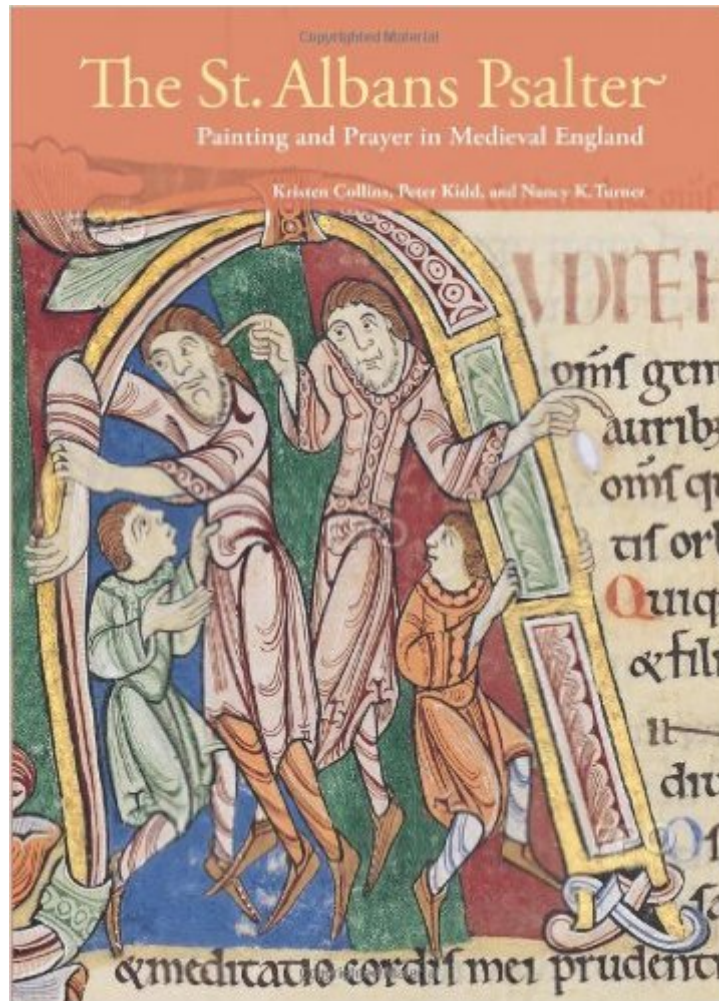 Copyrighted Material
The St. Albans Psalter
Painting and Prayer in Medieval England
Kristen Collins, Peter Kidd, and Nancy K. Turner
VDITE H
om̄s gem
aurib;
om̄s q
tis orb
Quiq
& fili
diu
& meditatio cordis mei prudent